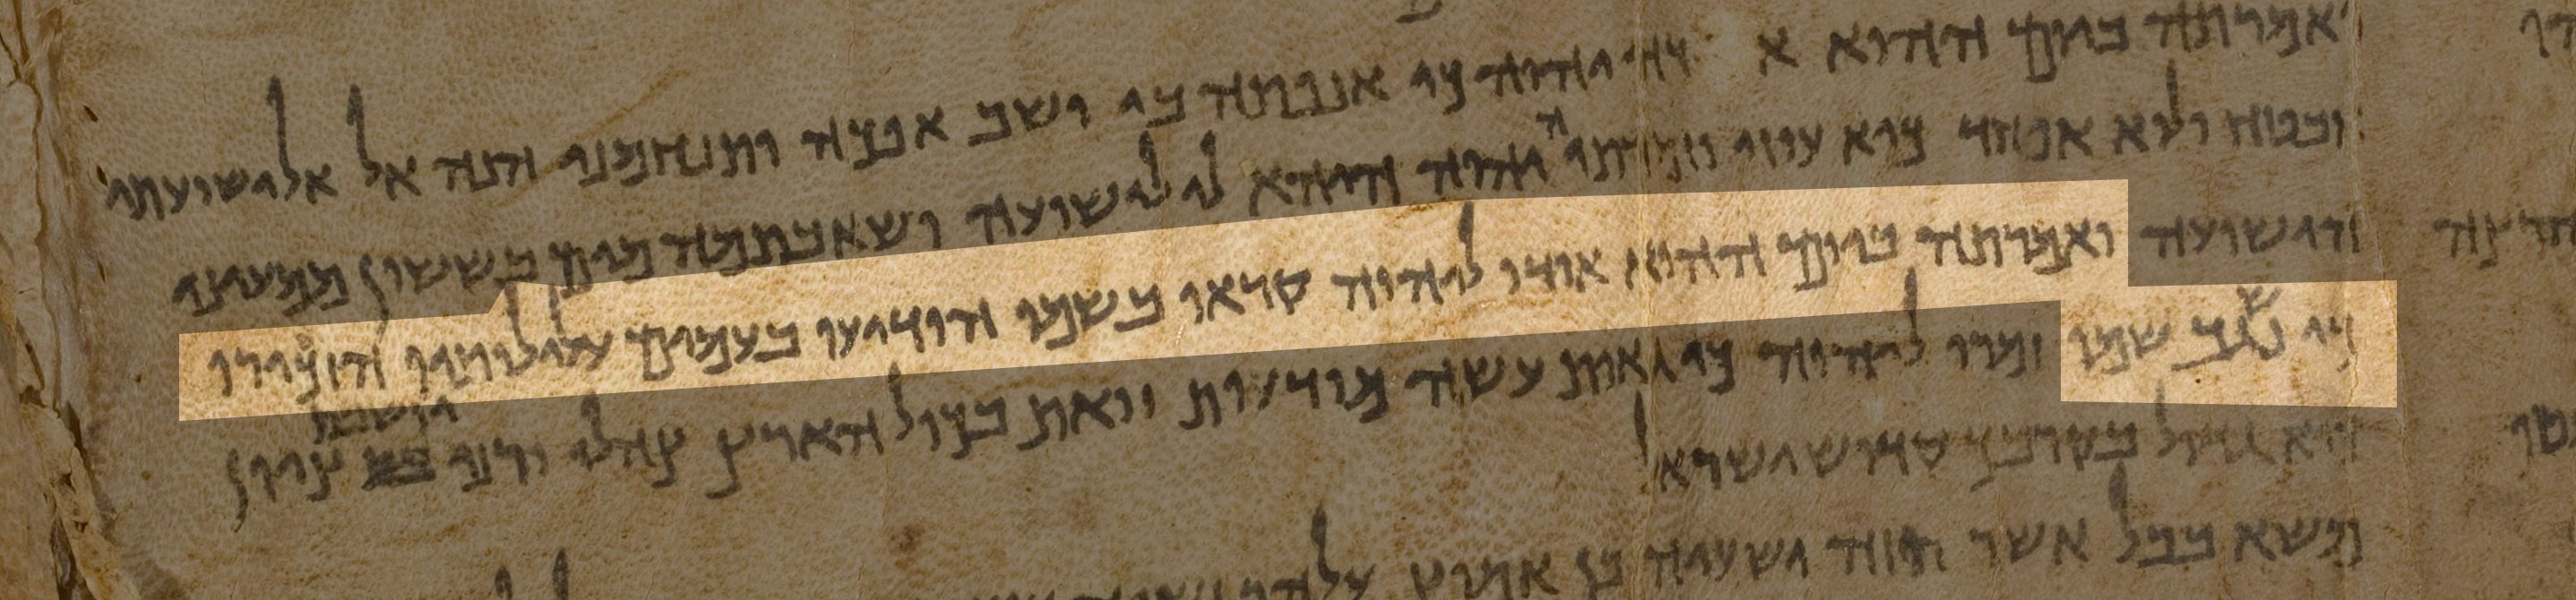 ואמרתה ביום ההוא אודך יהוה כי אנפתה בי ישב אפכה ותנחמני הנה אל אל ישועתי
אבטח ולוא אפחד כיא עוזי וזמרתי יהוה היהא לי לישועה ושאבתמה מים בששון ממעיני
הישועה ואמרתה ביום ההוא הודו ליהוה קראו בשמו הודיעו בעמים עלילותיו הזכירו
כי נשגב שמו זמרו ליהוה כי גאות עשה מודעות זואת בכול הארץ צהלי ורני יושבת ציון
כיא גדול בקרבך קדוש ישראל
משא בבל אשר חזה ישעיה בן אמוץ